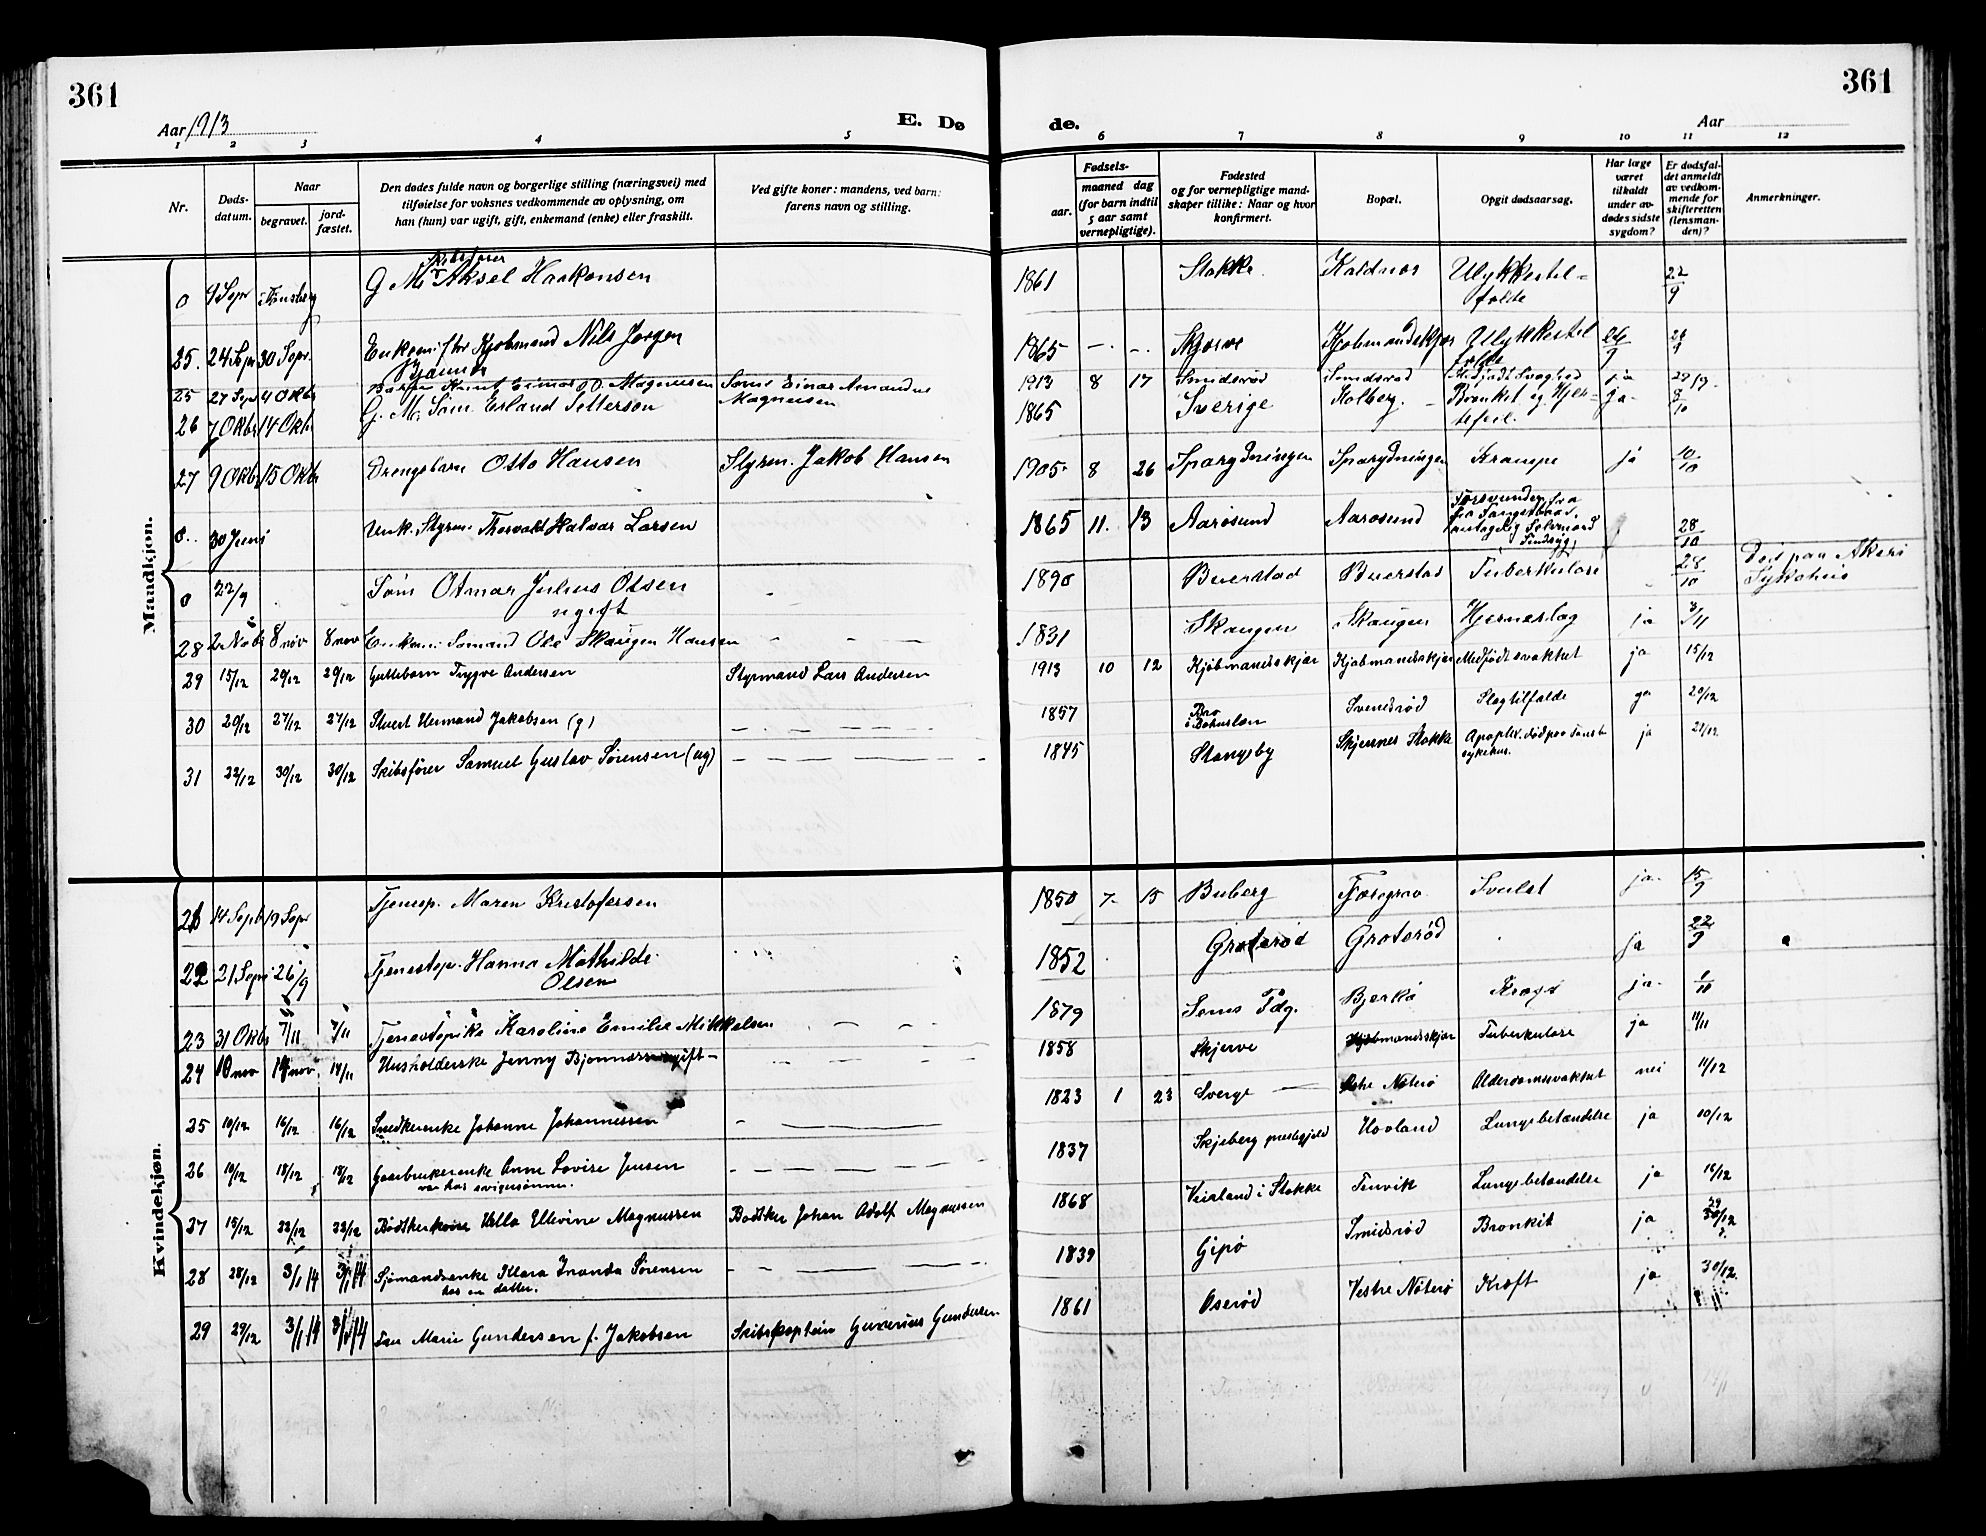 361
361
Aar 1913
E. Dø
de.
Aar
1 2 3 4 5 6 7 8 9 10 11 12
Nr.
Døds-
datum.
Naar
begravet.
jord-
fæstet.
Den dødes fulde navn og borgerlige stilling (næringsvei) med
tilføielse for voksnes vedkommende av oplysning, om
han (hun) var ugift, gift, enkemand (enke) eller fraskilt.
Ved gifte koner: mandens, ved barn:
farens navn og stilling.
Fødsels-
aar.
maaned dag
(for barn indtil
5 aar samt
vernepligtige).
Fødested
og for vernepligtige mand-
skaper tillike: Naar og hvor
konfirmert.
Bopæl.
Opgit dødsaarsag.
Har læge
været
tilkaldt
under av-
dødes sidste
sygdom?
Er dødsfal-
det anmeldt
av vedkom-
mende for
skifteretten
(lensman-
den)?
Anmerkninger.
Mandkjøn.
0 9 Sepr Tønsberg G. M. Skibsfører Aksel Haakonsen 1861 Stokke Kaldnes Ulykkestil-
folde 22/9
25. 24 Sepr 30 Sepr. Enkem. f hv Kjøbmand Nils Jørgen 1865 — . - . Skjerve Kjøbmandskjær Ulykkestil
folde 26/9
25 27 Sepr 4 Oktbr Knut Einar Magnusen Søm. Einar Amandus
Magnusen 1913 8 17 Smidsrød Smidsrød Medfødt Svaghed ja 29/9.
26 7 Oktbr 14 Oktbr G. M. Søm. Erland Petterson 1865 Sverige Kolberg. Bronkit og Hjer-
tefeil. ja. 8/10
27 9 Oktbr 15 Oktbr Drengebarn Otto Hansen Styrm. Jakob Hansen 1905 8 26 Sparydningen Sparydningen Krampe ja 10/10
0.. 30 Juni Unk. Styrm. Thorvald Halvar Larsen 1865 11. 13 Aarøsund Aarøsund Forsvunden fra
fra Fangstbaad,
antagelig Selvmord
Sindsyg 28/10
0 22/9 Søm Otmar Julius Olsen
ugift 1890 Buerstad Buerstad Tuberkulose 28/10 Død paa Akers
Sykehus
28 2 Nobr 8 nov 8 nov Enkem. Sømand Ole Skaugen Hansen — — — 1831 Skaugen Skaugen Hjerneslag ja 3/11
29 15/12 29/12 29/12 Guttebarn Trygve Andersen Styrmand Lars Andersen 1913 10 12 Kjøbmandsskjær Kjøbmandsskjær Medfødt svakhet ja 15/12
30 20/12 27/12 27/12 Stuert Herman Jakobsen (g) — — — 1857 Bro
i Bohuslen Svendsrød Slagtilfælde ja 20/12
31 22/12 30/12 30/12 Skibsfører Samuel Gustav Sørensen (ug) — — — 1845 Stangeby Skjersnes Stokke Apoplexi. død paa Tønsb
sykehus. ja 27/12
Kvindekjøn.
21 14 Septb 19 Sepr Tjenesp. Maren Kristofersen 1850 7. 15 Buberg Fjæregrav Svulst ja. 15/9
22 21 Sepr 26/9 Tjenestep. Hanna Mathilde
Olsen 1852 Groterød Groterød ja 22/9
23 31 Oktbr 7/11 7/11 Tjenestepike Karoline Emilie Mikkelsen — — 1879 Sems Pdg. Bjerkø Kræft ja. 1/11
24 10 nov 14 nov. 14/11 Husholderske Jenny Bjønnes ugift — 1858 Skjerve Kjøbmandsskjær Tuberkulose ja 11/11
25 10/12 16/12 16/12 Snedkerenke Johanne Johannessen — — — 1823 1 23 Sverge — Østre Nøterø Alderdomssvakhet nei 11/12
26 10/12 18/12 18/12 Gaarbrukerenke Anne Lovise Jensen
var hos svigersønnen. — — — 1837 Skjeberg prestegjeld Hovland Lungebetændelse ja 10/12
27 15/12 22/12 22/12 Bødtkerkone Ella Ellevine Magnussen Bødtker Johan Adolf Magnussen 1868 Veirland i Stokke Tenvik Lungebetændelse ja 16/12
28 28/12 3/1 14 3/1 14 Sjømandsenke Klara Iranda Sørensen
hos en datter. — — — 1839 Gipø Smidsrød Bronkit ja 29/12
29 29/12 3/1 14 3/1 14 Marie Gundersen f. Jakobsen Skibskaptein Gunerius Gundersen 1861 Oserød Vestre Nøterø Kræft ja 30/12.